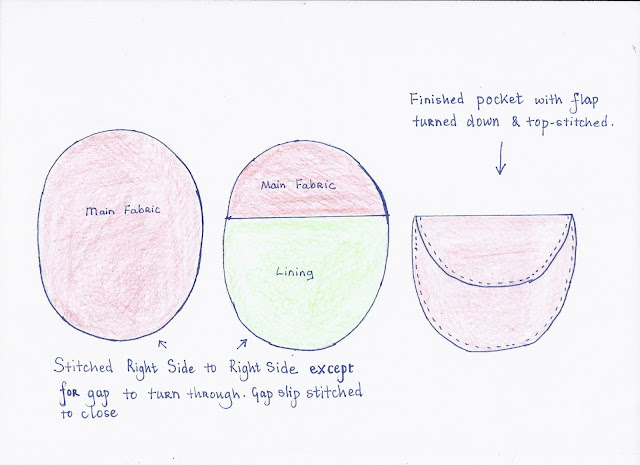 Finished pocket with flap
turned down & top-stitched.
Main Fabric
Main Fabric
Lining
Stitched Right Side to Right Side except
for gap to turn through. Gap slip stitched
to close